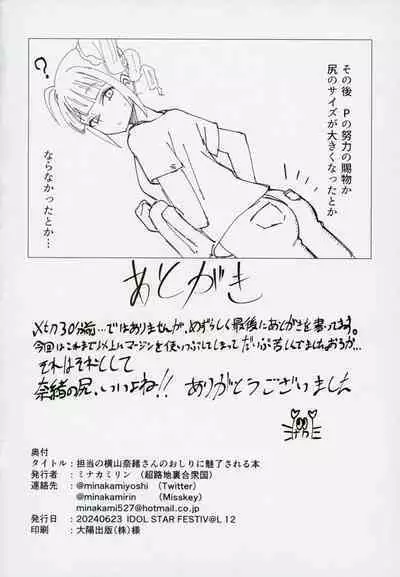 その後 Pの努力の賜物か
尻のサイズが大きくなったとか
ならなかったとか…
?
あとがき
〆切30分前…ではありませんが、めずらしく最後にあとがきを書いてます。
今回はこれまで以上にマージンを使いつぶしてしまって だいぶ苦しんでました
それはそれとして
奈緒の尻、いいよね!! ありがとうございました
奥付
タイトル:担当の横山奈緒さんのおしりに魅了される本
発行者:ミナカミリン (超路地裏合衆国)
連絡先:@minakamiyoshi (Twitter)
@minakamirin (Misskey)
minakami527@hotmail.co.jp
発行日:20240623 IDOL STAR FESTIV@L 12
印刷:大陽出版(株)様